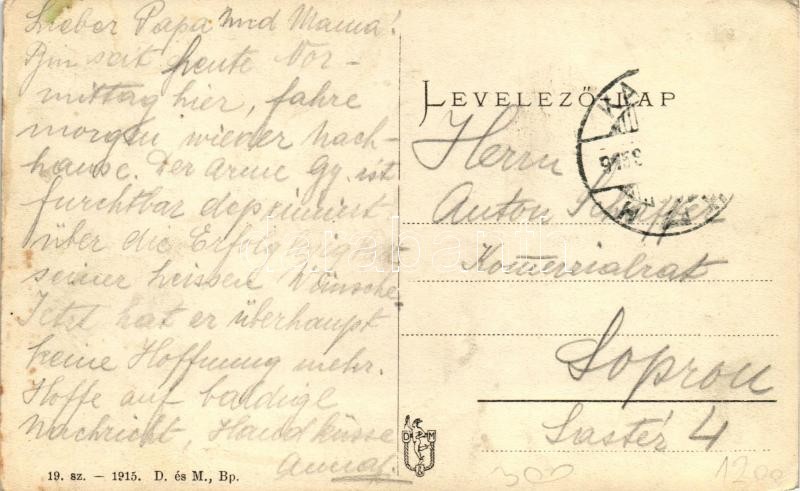 Lieber Papa und Mama!
Bin seit heute Vor-
mittag hier, fahre
morgen wieder nach-
hause. Der arme Gy. ist
furchtbar deprimirt
über die Erfolglosigkeit
seiner heissen Wünsche
Jetzt hat er überhaupt
keine Hoffnung mehr.
Hoffe auf baldige
Nachricht, Handküsse
Anna
19. sz. – 1915. D. és M., Bp.
LEVELEZŐ-LAP
Herrn
Anton
Komerzialrat
Sopron
4
D M
300
1200